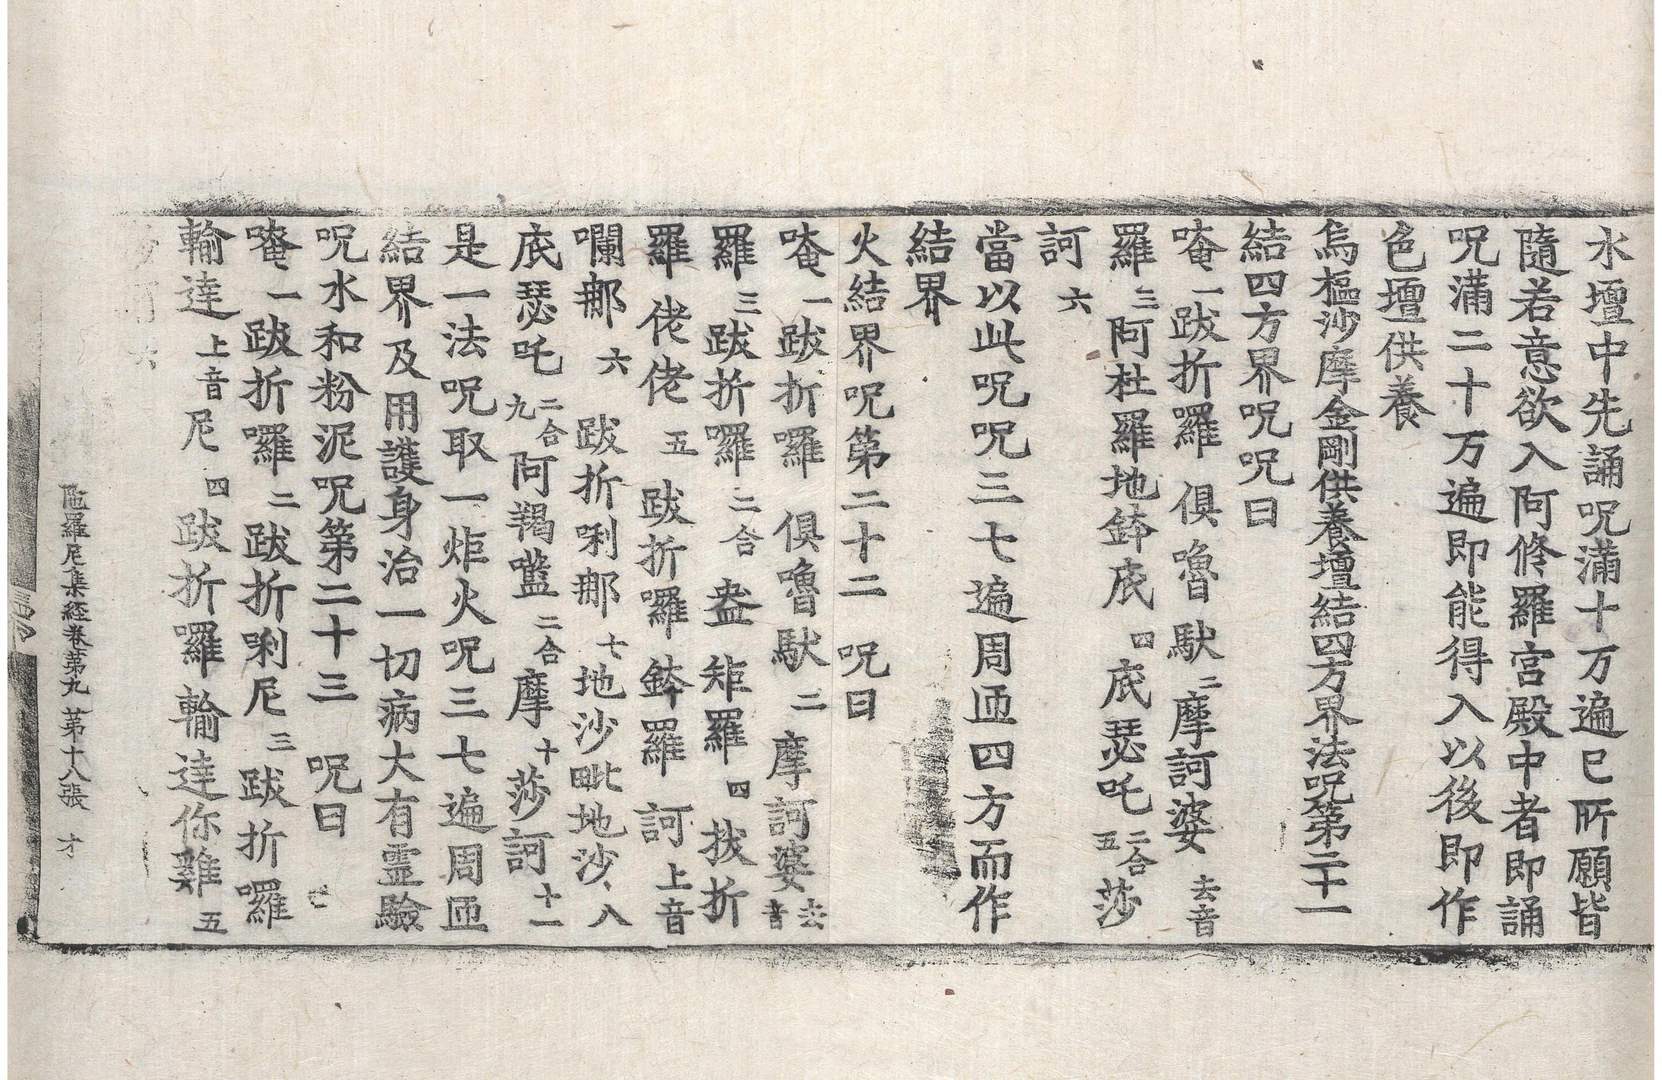 水壇中先誦呪滿十万遍已所願皆
隨若意欲入阿脩羅宮殿中者即誦
呪滿二十万遍即能得入以後即作
色壇供養
烏樞沙摩金剛供養壇結四方界法呪第二十一
結四方界呪呪曰
唵一跋折囉俱嚕馱二摩訶婆去音
羅三阿杜羅地鉢底四底瑟吒二合五莎
訶六
當以此呪呪三七遍周匝四方而作
結界
火結界呪第二十二 呪曰
唵一跋折囉俱嚕馱二摩訶婆去音
羅三跋折囉二合盎矩羅四拔折
羅佬佬五跋折囉鉢羅訶上音
囒那六跋折唎那七地沙毗地沙八
底瑟吒二合九阿羯𡀔二合摩十莎訶十一
是一法呪取一炬火呪三七遍周匝
結界及用護身治一切病大有霊驗
呪水和粉泥呪第二十三 呪曰
唵一跋折囉二跋折唎尼三跋折囉
輸達上音尼四跋折囉輸達你雞五
陁羅尼集經卷第九 第十八張 才